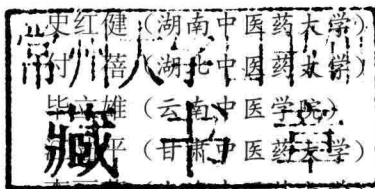 史红健（湖南中医药大学）
付 蓓（湖北中医药大学）
毕立雄（云南中医学院）
平（甘肃中医药大学）
常州大学图书馆
藏书章